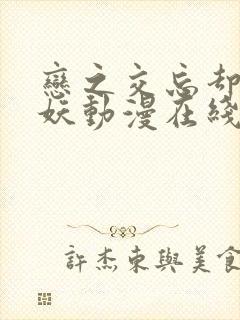 戀之交忘却
妖動漫在綫
許杰東與美食